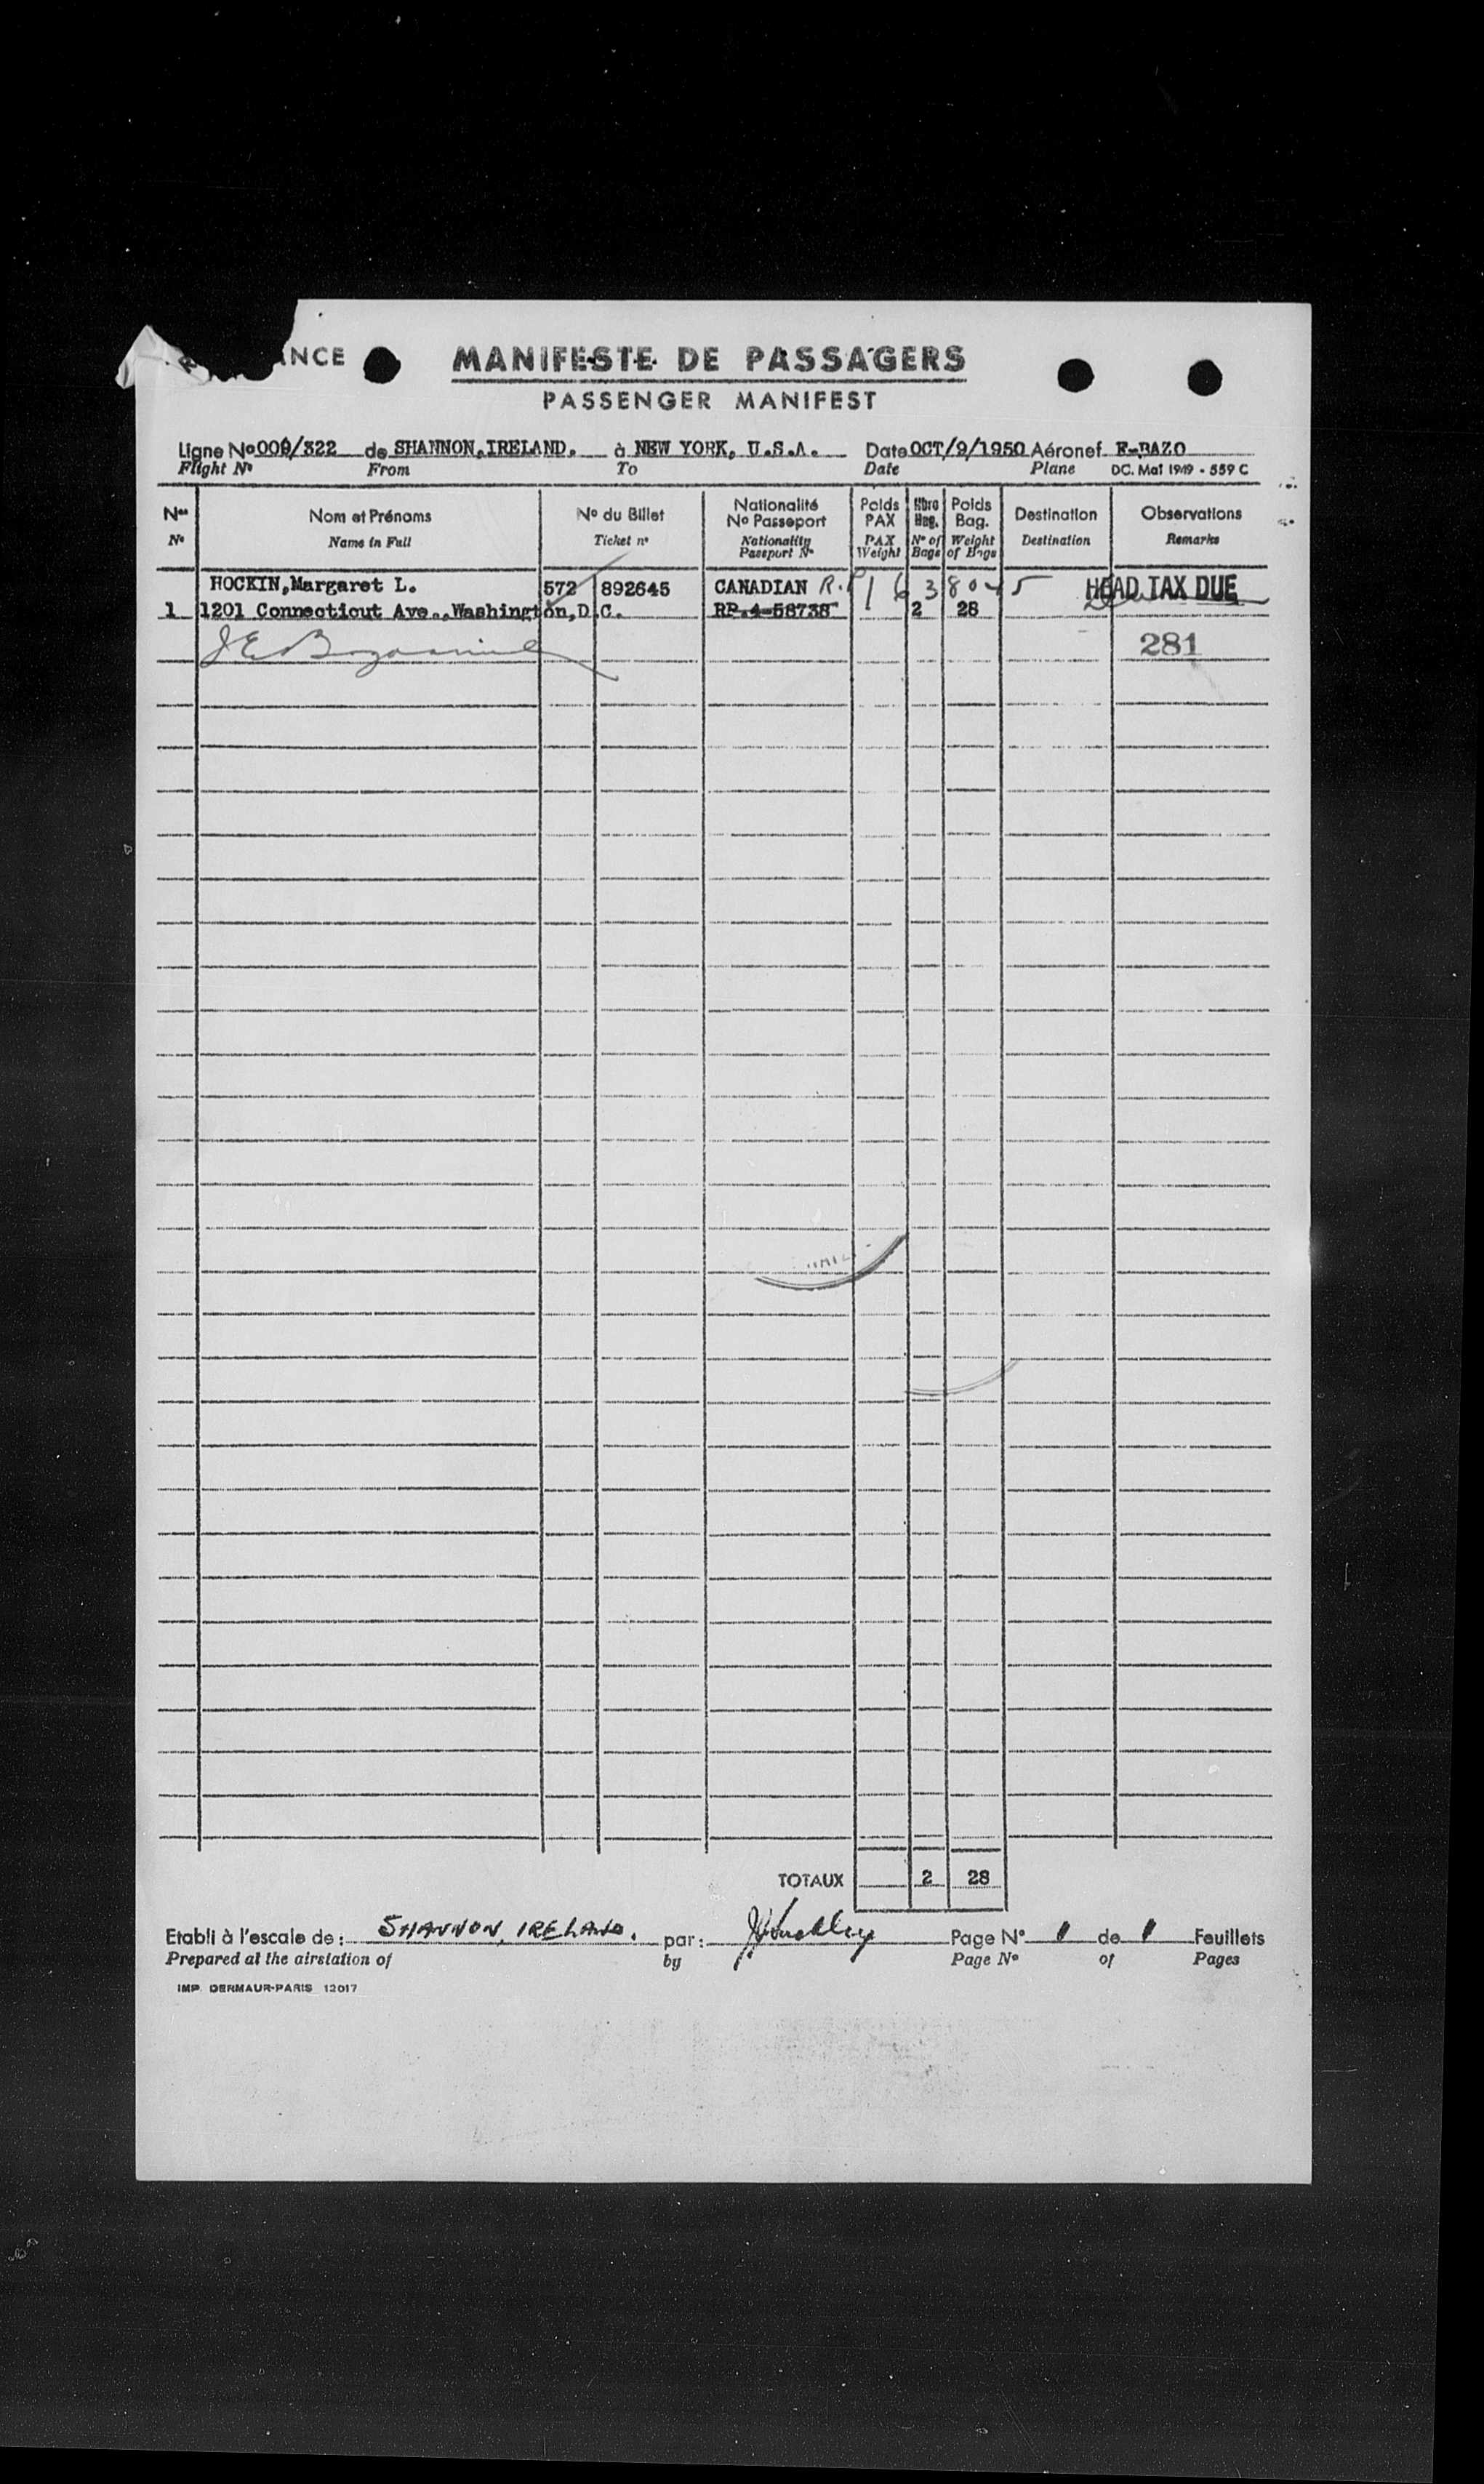 MANIFESTE DE PASSAGERS
PASSENGER MANIFEST
Ligne No 009/322 de SHANNON,IRELAND. à NEW YORK, U.S.A. Date OCT/9/1950 Aéronef F-BAZO
Flight No From To Date Plane DC. Mat 1949 - 559 C
Nos Nom et Prénoms No du Billet Nationalité No Passeport Poids PAX Nbre Bag. Poids Bag. Destination Observations
No Name in Full Ticket no Nationality Passport No PAX Weight No of Bags Weight of Bags Destination Remarks
HOCKIN,Margaret L. 572 892645 CANADIAN R.P 1638045 HEAD TAX DUE
1 1201 Connecticut Ave.,Washington,D.C. RP.4-58738 2 28
281
TOTAUX 2 28
Etabli à l'escale de: SHANNON, IRELAND. par: Page No 1 de 1 Feuillets
Prepared at the airstation of by Page No of Pages
IMP. DERMAUR-PARIS 12017